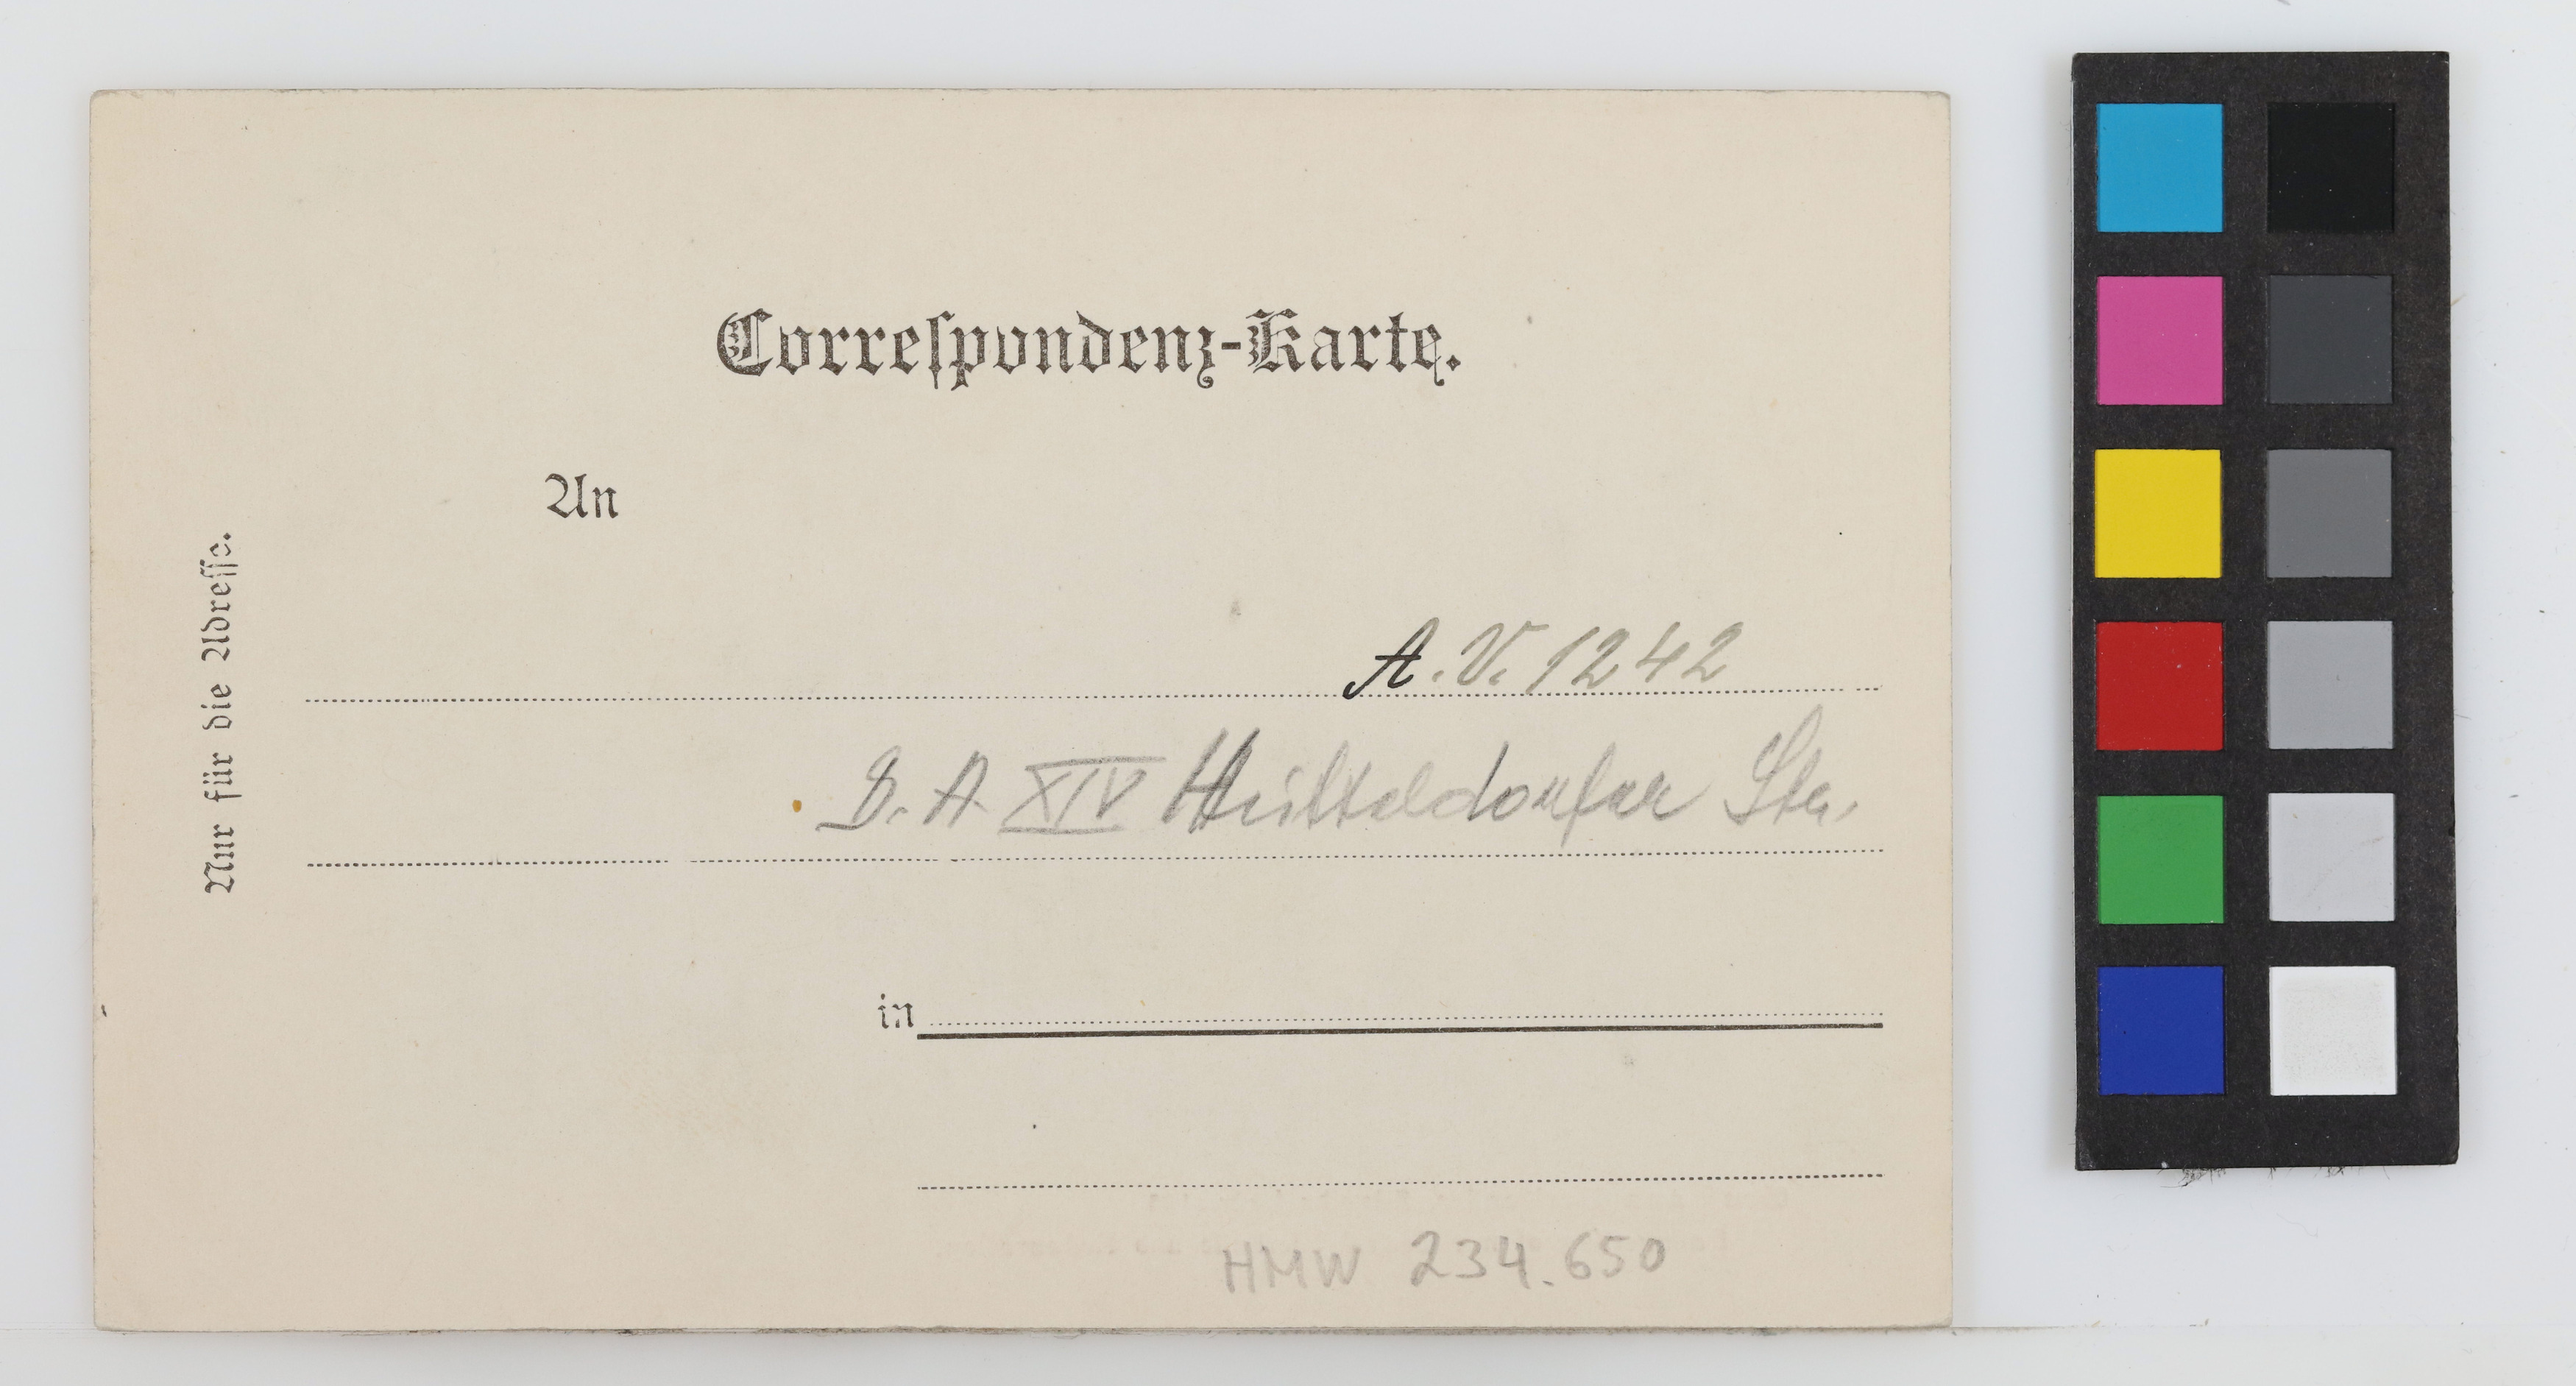 Correſpondenz-Karte.
An
Nur für die Adreſſe.
A. V. 1242
D. A. XIV Hütteldorfer Str.
in
HMW 234.650